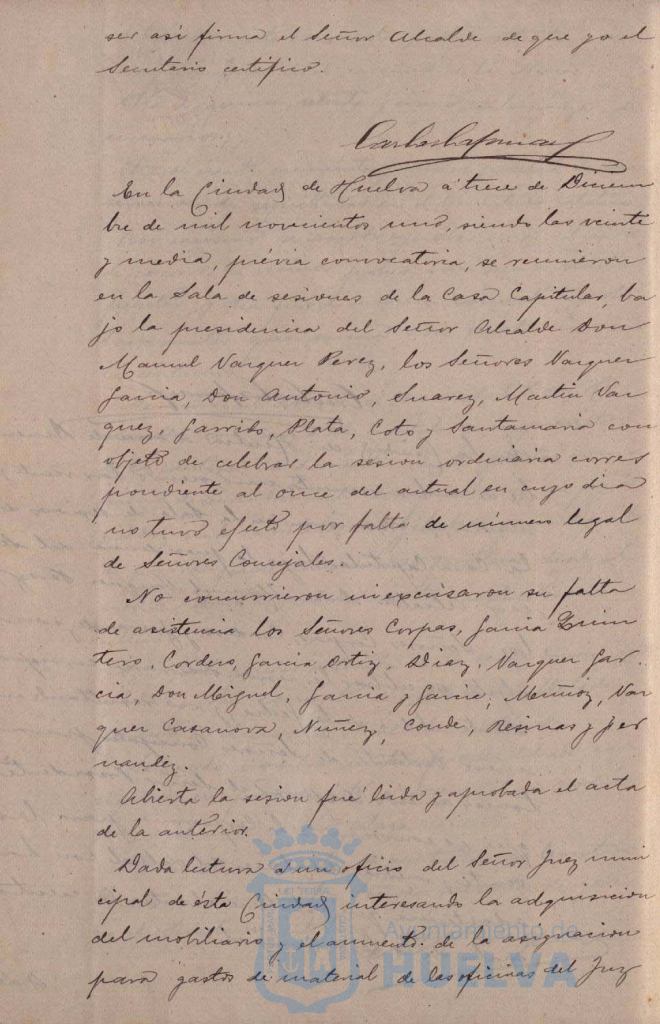 ser así firma el Señor Alcalde de que yo el
Secretario certifico.
En la Ciudad de Huelva á trece de Diciem
bre de mil novecientos uno, siendo las veinte
y media, prévia convocatoria, se reunieron
en la Sala de sesiones de la Casa Capitular, ba
jo la presidencia del Señor Alcalde Don
Manuel Vazquez Perez, los Señores Vazquez
Garcia, Don Antonio, Suarez, Martin Vaz
quez, Garrido, Plata, Coto y Santamaria con
objeto de celebrar la sesion ordinaria corres
pondiente al once del actual en cuyo dia
no tuvo efecto por falta de número legal
de Señores Concejales.
No concurrieron ni excusaron su falta
de asistencia los Señores Corpas, Garcia Quin
tero, Cordero, Garcia Ortiz, Diaz, Vazquez Gar-
cia, Don Miguel, Garcia y Garcia, Muñoz, Vaz
quez Casanova, Nuñez, Conde, Resinas y Fer
nandez.
Abierta la sesion fué leida y aprobada el acta
de la anterior.
Dada lectura á un oficio del Señor Juez muni
cipal de ésta Ciudad interesando la adquisicion
del mobiliario y el aumento de la asignacion
para gastos de material de las oficinas del Juz
Ayuntamiento de
HUELVA